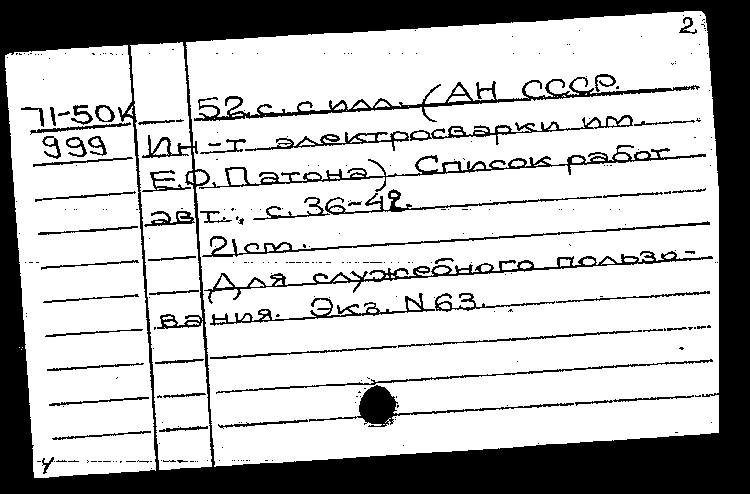 2
71-50К 52 с. с илл. (АН СССР.
999 Ин-т электросварки им.
Е.О. Патона). Список работ
авт.: с. 36-42.
21 cm.
Для служебного пользо-
вания. Экз. N 63.